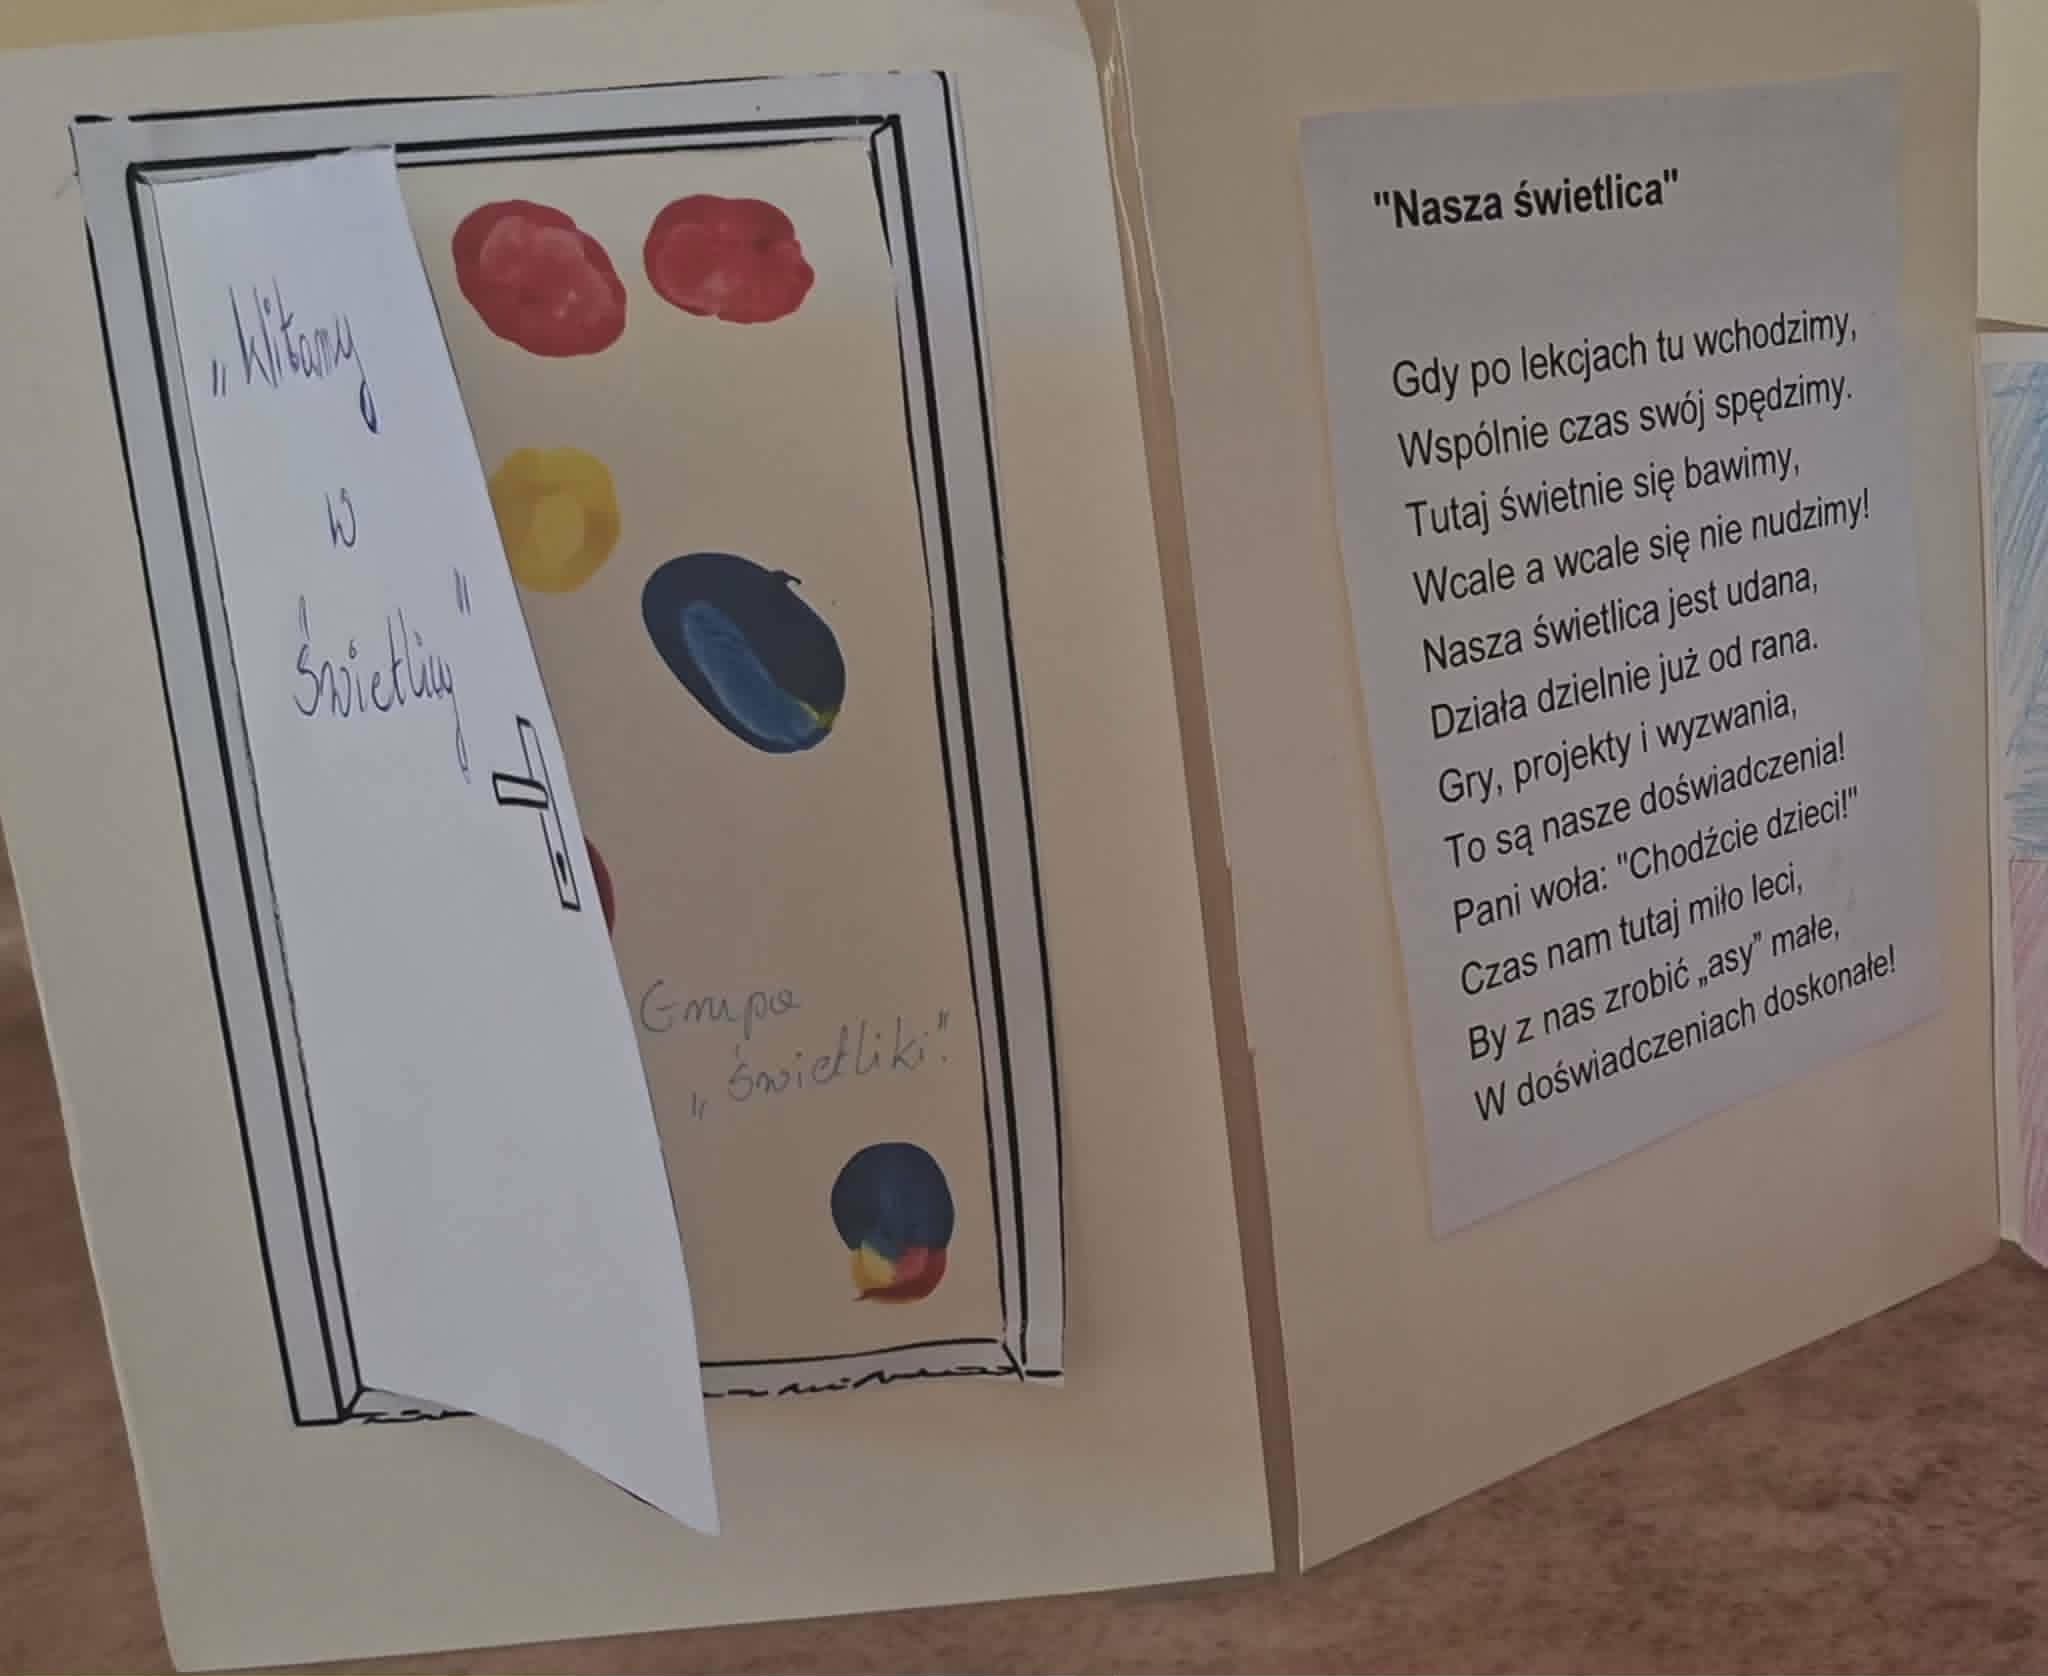 „Witamy
w
Świetlicy"
Grupa
„Świetliki".
"Nasza świetlica"
Gdy po lekcjach tu wchodzimy,
Wspólnie czas swój spędzimy.
Tutaj świetnie się bawimy,
Wcale a wcale się nie nudzimy!
Nasza świetlica jest udana,
Działa dzielnie już od rana.
Gry, projekty i wyzwania,
To są nasze doświadczenia!
Pani woła: "Chodźcie dzieci!"
Czas nam tutaj miło leci,
By z nas zrobić „asy” małe,
W doświadczeniach doskonałe!